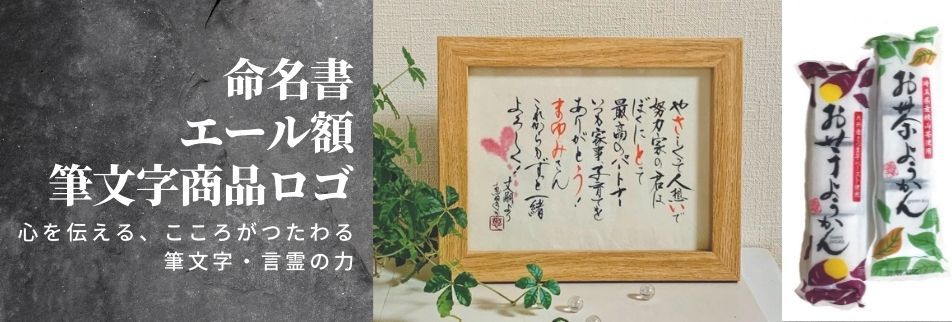 命名書
エール額
筆文字商品ロゴ
心を伝える、こころがつたわる
筆文字・言霊の力
やさしくて人想いで
努力家の君は
ぼくにとって
最高のパートナー
いつも家事子育てを
ありがとう!
まゆみさん
これからもずっと一緒
お茶ようかん